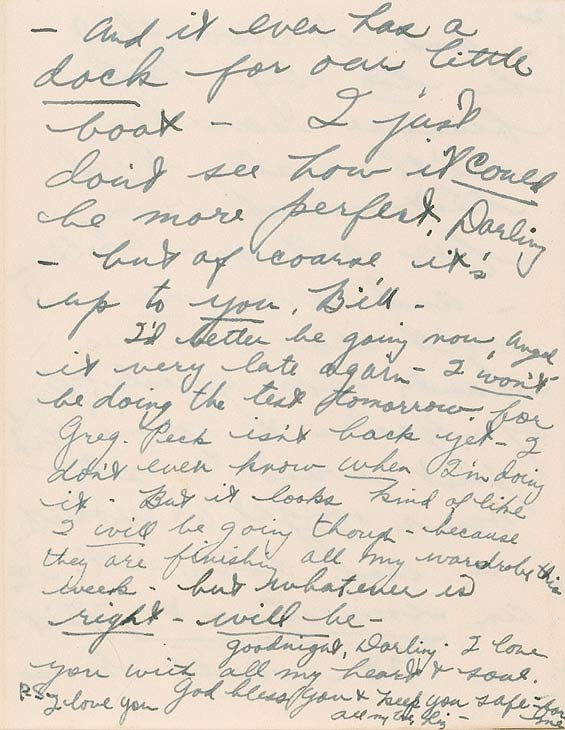 - And it even has a
dock for our little
boat - I just
don't see how it could
be more perfect, Darling
- but of coarse it's
up to you, Bill -
I'd better be going now, Angel
it very late again - I won't
be doing the test tomorrow for
Greg. Peck isn't back yet - I
don't even know when I'm doing
it - But it looks kind of like
I will be going though - because
they are finishing all my wardrobe this
week - but whatever is
right - will be -
goodnight, Darling - I love
you with all my heart & soul.
God bless you & keep you safe - for me
P.S. I love you
all my